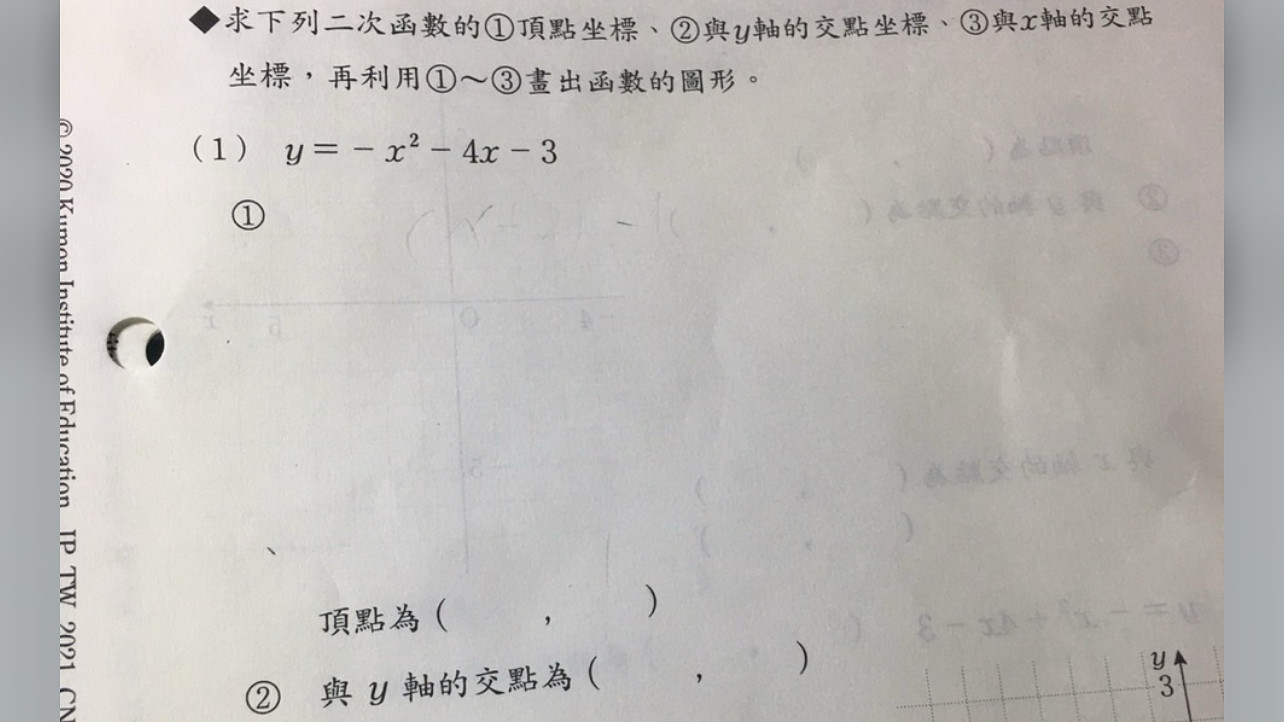 ◆求下列二次函數的①頂點坐標、②與y軸的交點坐標、③與x軸的交點
坐標，再利用①～③畫出函數的圖形。
(1) y = - x² - 4x - 3
①
頂點為 ( , )
② 與 y 軸的交點為 ( , )
y
3
© 2020 Kumon Institute of Education JP TW 2021 CN